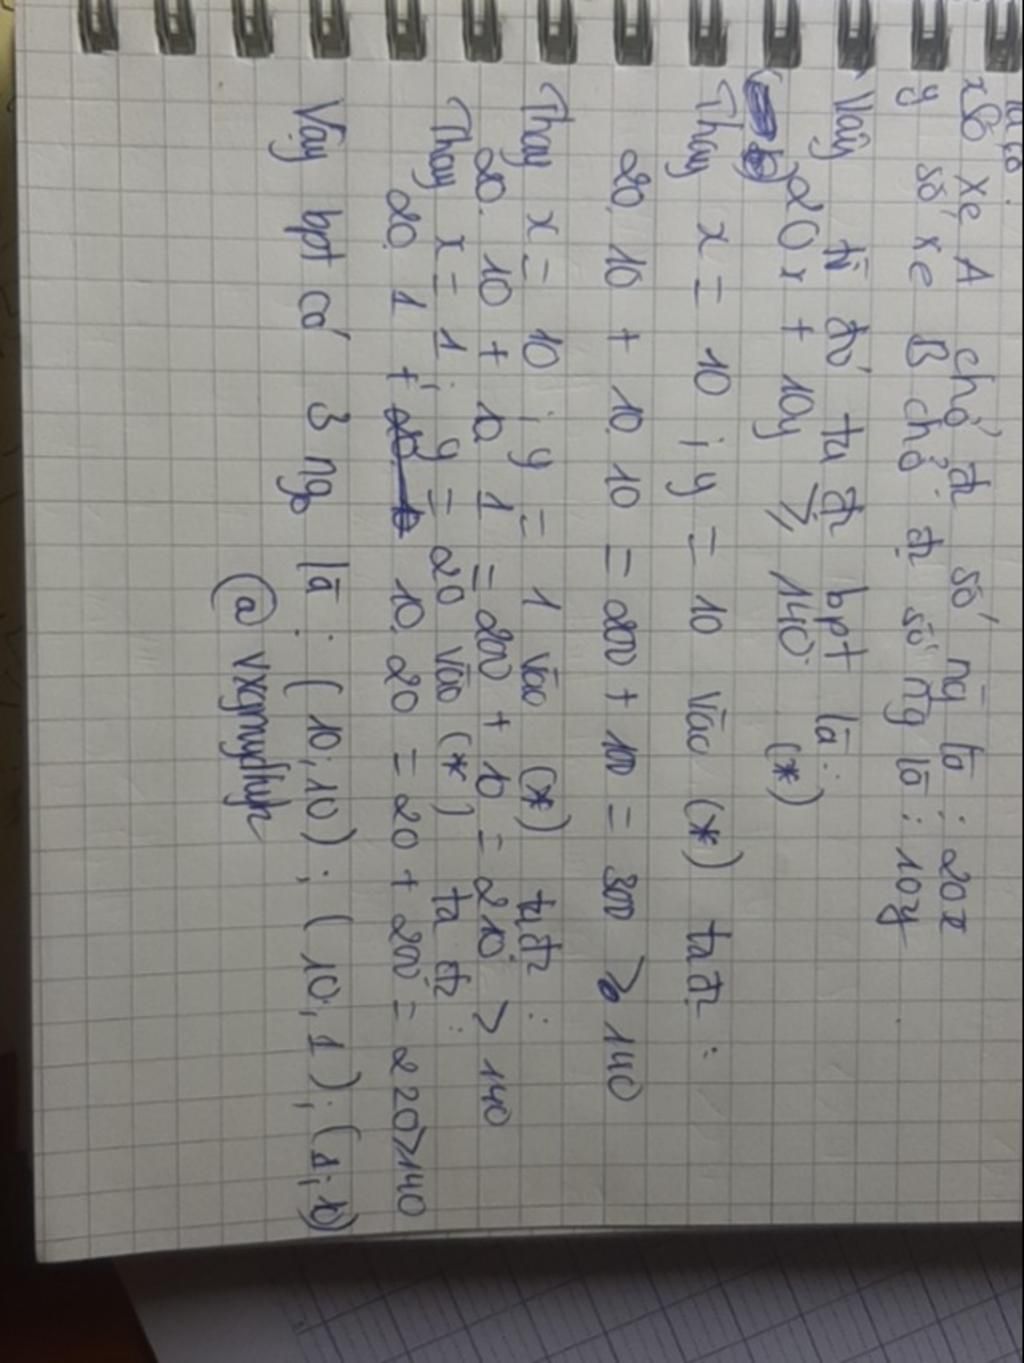 Ta có:
x số xe A chở đc số ng là : 20x
y số xe B chở đc số ng là : 10y
Vậy từ đó ta đc bpt là :
20x + 10y ≥ 140 (*)
Thay x = 10 ; y = 10 vào (*) ta đc :
20. 10 + 10. 10 = 200 + 100 = 300 ≥ 140
Thay x = 10 ; y = 1 vào (*) ta đc :
20. 10 + 10 1 = 200 + 10 = 210 > 140
Thay x = 1 ; y = 20 vào (*) ta đc :
20 1 + 10. 20 = 20 + 200 = 220 > 140
Vậy bpt có 3 ngo là : (10 ; 10) ; (10 ; 1) ; (1 ; 10)
@ vxgmydhyh